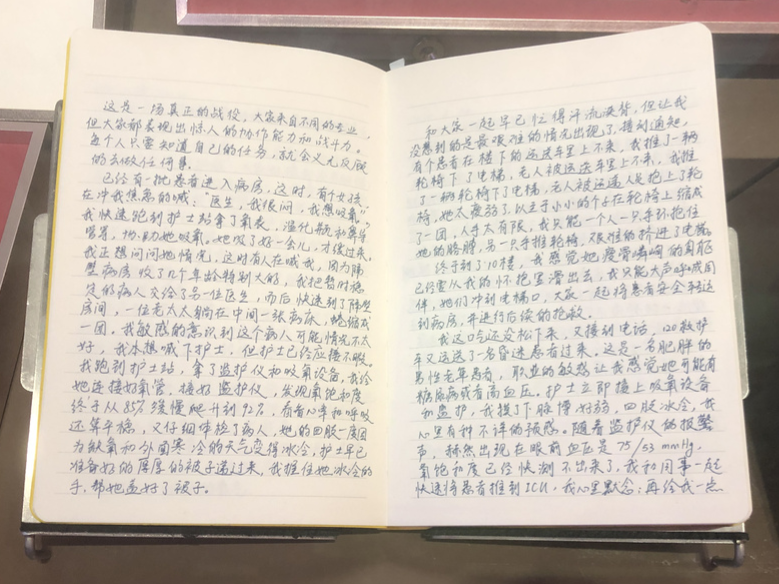 这是一场真正的战役，大家来自不同的专业，
但大家都表现出惊人的协作能力和战斗力。
每个人只需知道自己的任务，就会义无反顾
的去做任何事。
已经有一批患者进入病房，这时，有个女孩
在冲我焦急的喊：“医生，我很闷，我想吸氧”
我快速跑到护士站拿了氧表，湿化瓶和鼻导
管等，协助她吸氧。她吸了好一会儿，才缓过来，
我正想问问她情况，这时有人在喊我，因为
型病房收了几个年龄特别大的，我把暂时稳
定的病人交给了另一位医生，而后快速到了
房间，一位老太太躺在中间一张病床，蜷缩成
一团。我敏感的意识到这个病人可能情况不太
好，我本想喊下护士，但护士已经应接不暇。
我跑到护士站，拿了监护仪和吸氧设备，我给
她连接好氧管，接好监护仪，发现氧饱和度
终于从85%缓慢爬升到92%，看看心率和呼吸
还算平稳，又仔细体检了病人，她的四肢一度因
为缺氧和外面寒冷的天气变得冰冷，护士早已
准备好的厚厚的被子递过来，我握住她冰冷的
手，帮她盖好了被子。
和大家一起早已忙得汗流浃背，但让我
没想到的是最艰难的情况出现了，接到通知，
有个患者在楼下的运送车里上不来，我推了一辆
轮椅下了电梯，无人被运送车里上不来，我推
了一辆轮椅下了电梯，无人被运送人是抱上了轮
椅，她太瘦弱了，以至于小小的个子在轮椅上缩成
了一团，人手太有限，我只能一个人一只手环抱住
她的肩膀，另一只手推轮椅，艰难的挤进了电梯。
终于到了10楼，我感觉她瘦骨嶙峋的肩膀
已经要从我的怀抱里滑出去，我只能大声呼喊同
伴，她们冲到电梯口，大家一起将患者安全转运
到病房，并进行后续的抢救。
我这口气还没松下来，又接到电话，120救护
车又运送了名昏迷患者过来。这是一名肥胖的
男性老年患者，职业的敏感让我感觉他可能有
糖尿病或者高血压。护士立即接上吸氧设备
和监护，我摸了下脉搏好弱，四肢冰冷，我
心里有种不祥的预感。随着监护仪的报警
声，赫然出现在眼前血压是75/53mmHg，
氧饱和度已经快测不出来了，我和同事一起
快速将患者推到ICU，我心里默念：再给我一点